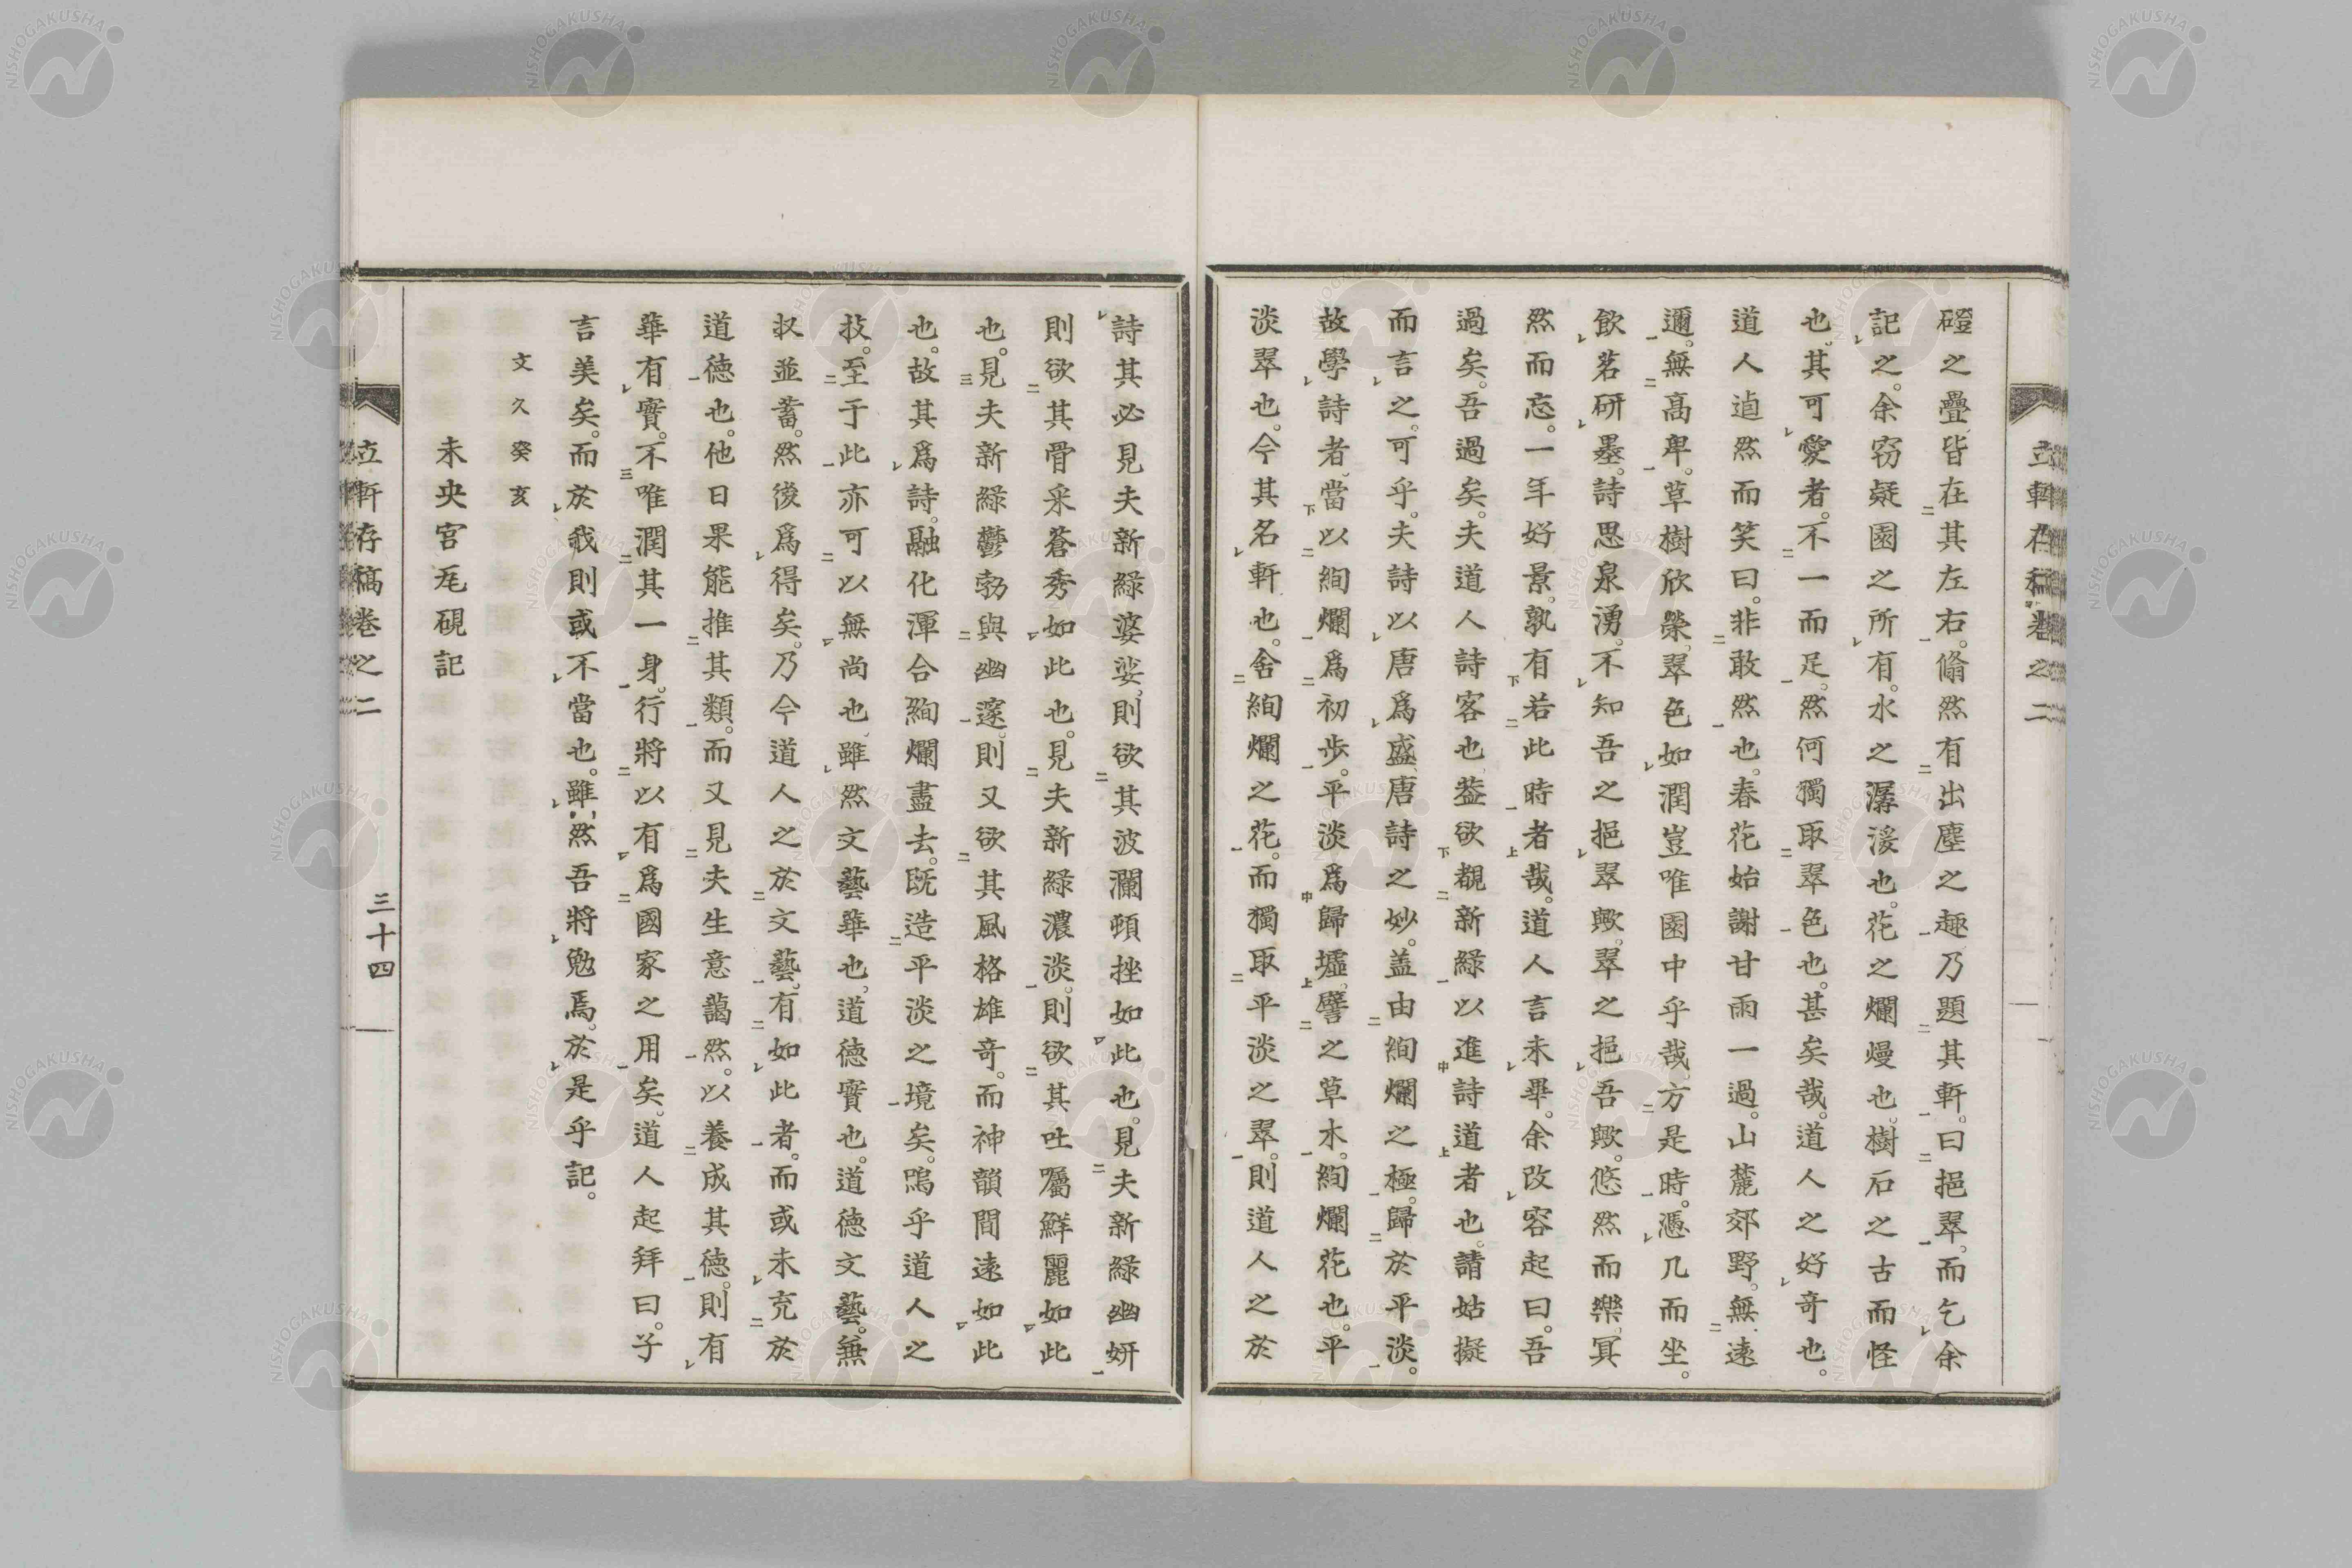 立軒存稿卷之二
磴之疊、皆在其左右。翛然有出塵之趣、乃題其軒。曰挹翠、而乞余
記之。余窃疑園之所有。水之潺湲也。花之爛熳也、樹石之古而怪
也、其可愛者。不一而足。然何獨取翠色也。甚矣哉。道人之好奇也。
道人逌然而笑曰。非敢然也。春花始謝甘雨一過。山麓郊野。無遠
邇。無高卑。草樹欣榮、翠色如潤豈唯園中乎哉。方是時。憑几而坐。
飲茗研墨。詩思泉湧。不知吾之挹翠歟。翠之挹吾歟。悠然而樂、冥
然而忘。一年好景。孰有若此時者哉。道人言未畢。余改容起曰。吾
過矣。吾過矣。夫道人詩客也、葢欲覩新綠以進詩道者也。請姑擬
而言之。可乎。夫詩以唐爲盛、唐詩之妙。盖由絢爛之極。歸於平淡。
故學詩者、當以絢爛爲初歩。平淡爲歸墟。譬之草木。絢爛花也。平
淡翠也。今其名軒也。舍絢爛之花。而獨取平淡之翠。則道人之於
詩其必見夫新綠婆娑、則欲其波瀾頓挫如此也。見夫新綠幽妍
則欲其骨釆蒼秀如此也。見夫新綠濃淡。則欲其吐囑鮮麗如此
也。見夫新綠鬱勃與幽邃。則又欲其風格雄奇。而神韻間遠如此
也。故其爲詩。融化渾合絢爛盡去。既造平淡之境矣。嗚乎道人之
技。至于此亦可以無尚也、雖然文藝華也。道徳實也。道徳文藝。無
収並蓄。然後爲得矣。乃今道人之於文藝。有如此者。而或未充於
道徳也。他日果能推其類。而又見夫生意藹然。以養成其徳。則有
華有實。不唯潤其一身。行將以有爲國家之用矣。道人起拜曰。子
言美矣。而於我則或不當也。雖然吾將勉焉。於是乎記。
文久癸亥
未央宮瓦硯記
立軒存稿卷之二
三十四